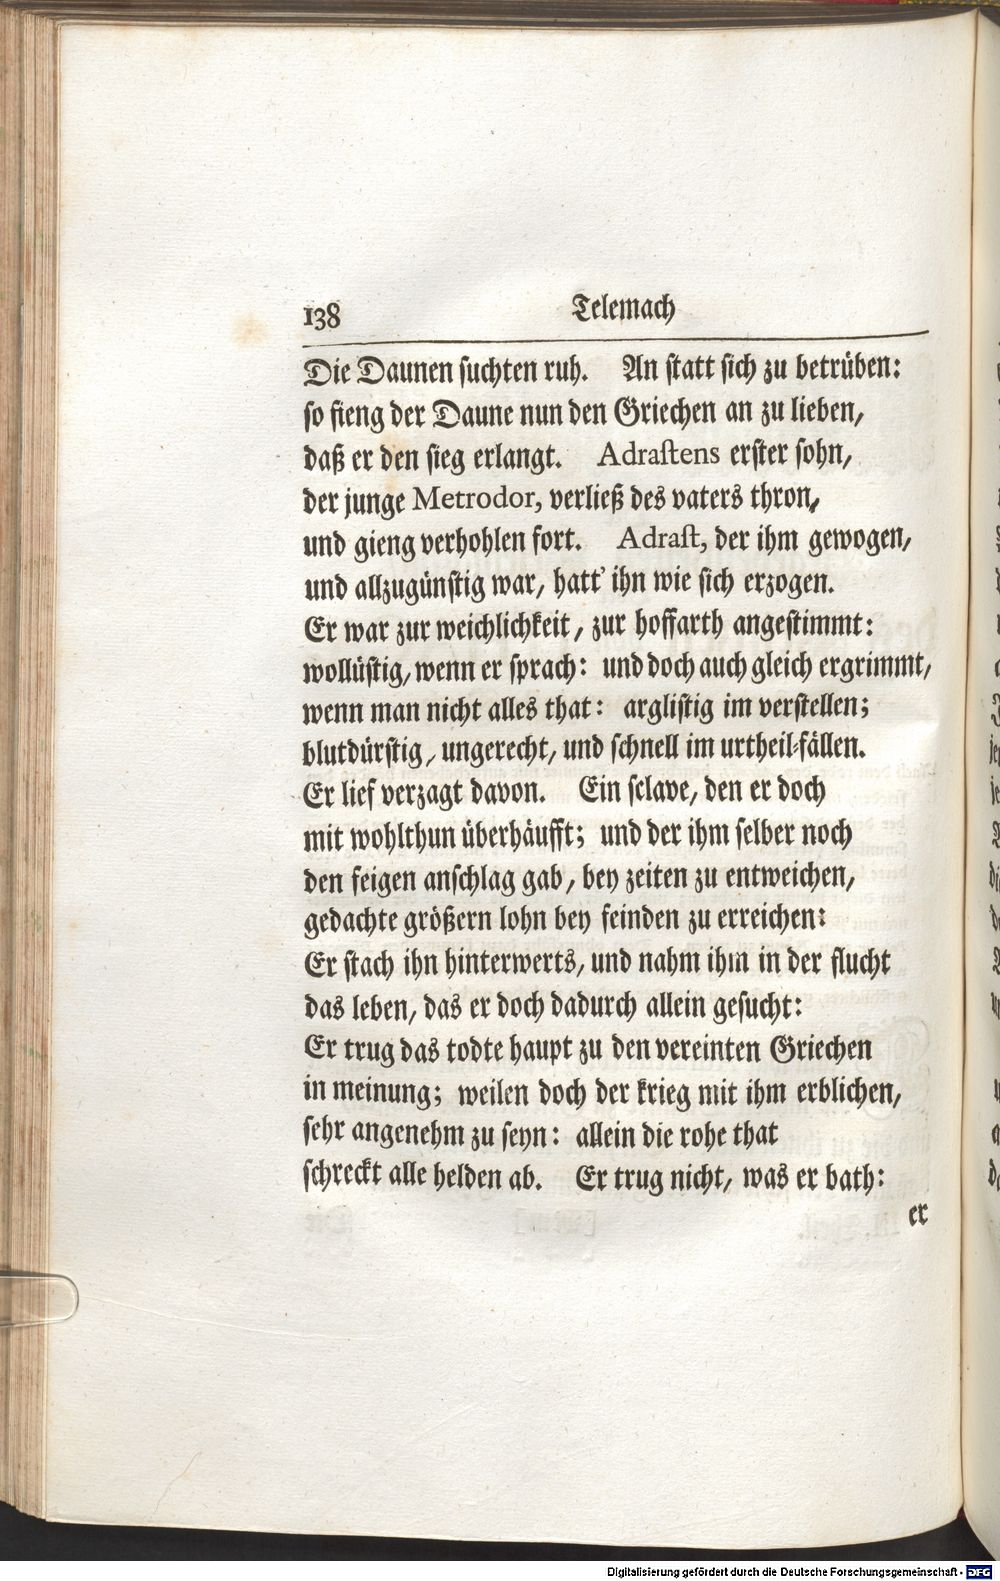 138 Telemach
Die Daunen suchten ruh. An statt sich zu betrüben:
so fieng der Daune nun den Griechen an zu lieben,
daß er den sieg erlangt. Adrastens erster sohn,
der junge Metrodor, verließ des vaters thron,
und gieng verhohlen fort. Adrast, der ihm gewogen,
und allzugünstig war, hatt' ihn wie sich erzogen.
Er war zur weichlichkeit, zur hoffarth angestimmt:
wollüstig, wenn er sprach: und doch auch gleich ergrimmt,
wenn man nicht alles that: arglistig im verstellen;
blutdürstig, ungerecht, und schnell im urtheil-fällen.
Er lief verzagt davon. Ein sclave, den er doch
mit wohlthun überhäufft; und der ihm selber noch
den feigen anschlag gab, bey zeiten zu entweichen,
gedachte größern lohn bey feinden zu erreichen:
Er stach ihn hinterwerts, und nahm ihm in der flucht
das leben, das er doch dadurch allein gesucht:
Er trug das todte haupt zu den vereinten Griechen
in meinung; weilen doch der krieg mit ihm erblichen,
sehr angenehm zu seyn: allein die rohe that
schreckt alle helden ab. Er trug nicht, was er bath:
er
Digitalisierung gefördert durch die Deutsche Forschungsgemeinschaft - DFG